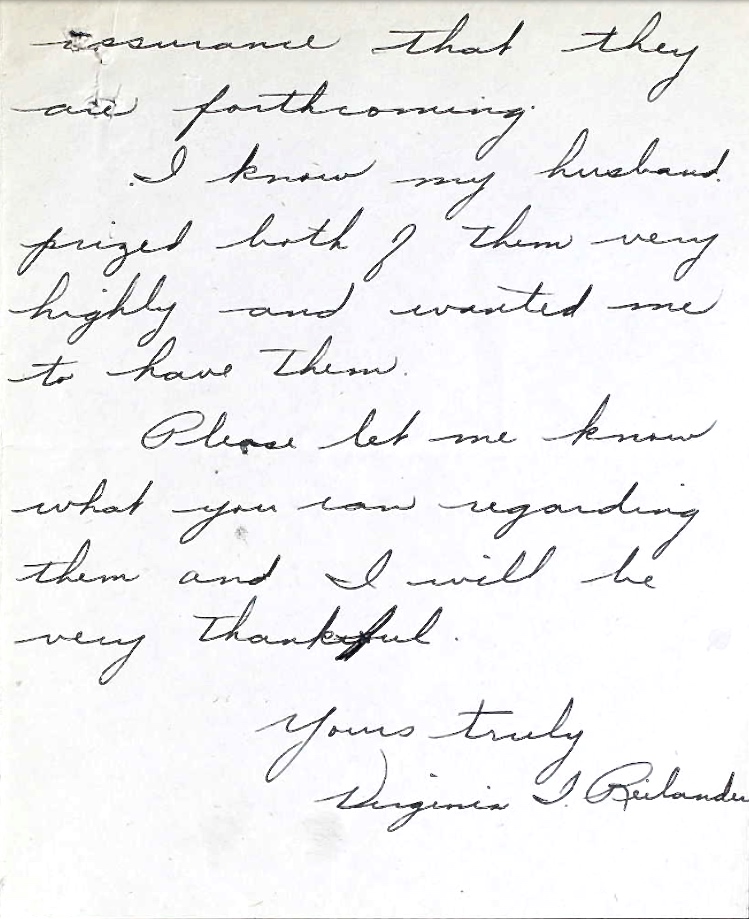 assurance that they
are forthcoming.
I know my husband
prized both of them very
highly and wanted me
to have them.
Please let me know
what you can regarding
them and I will be
very thankful.
Yours truly
Virginia I. Reilander